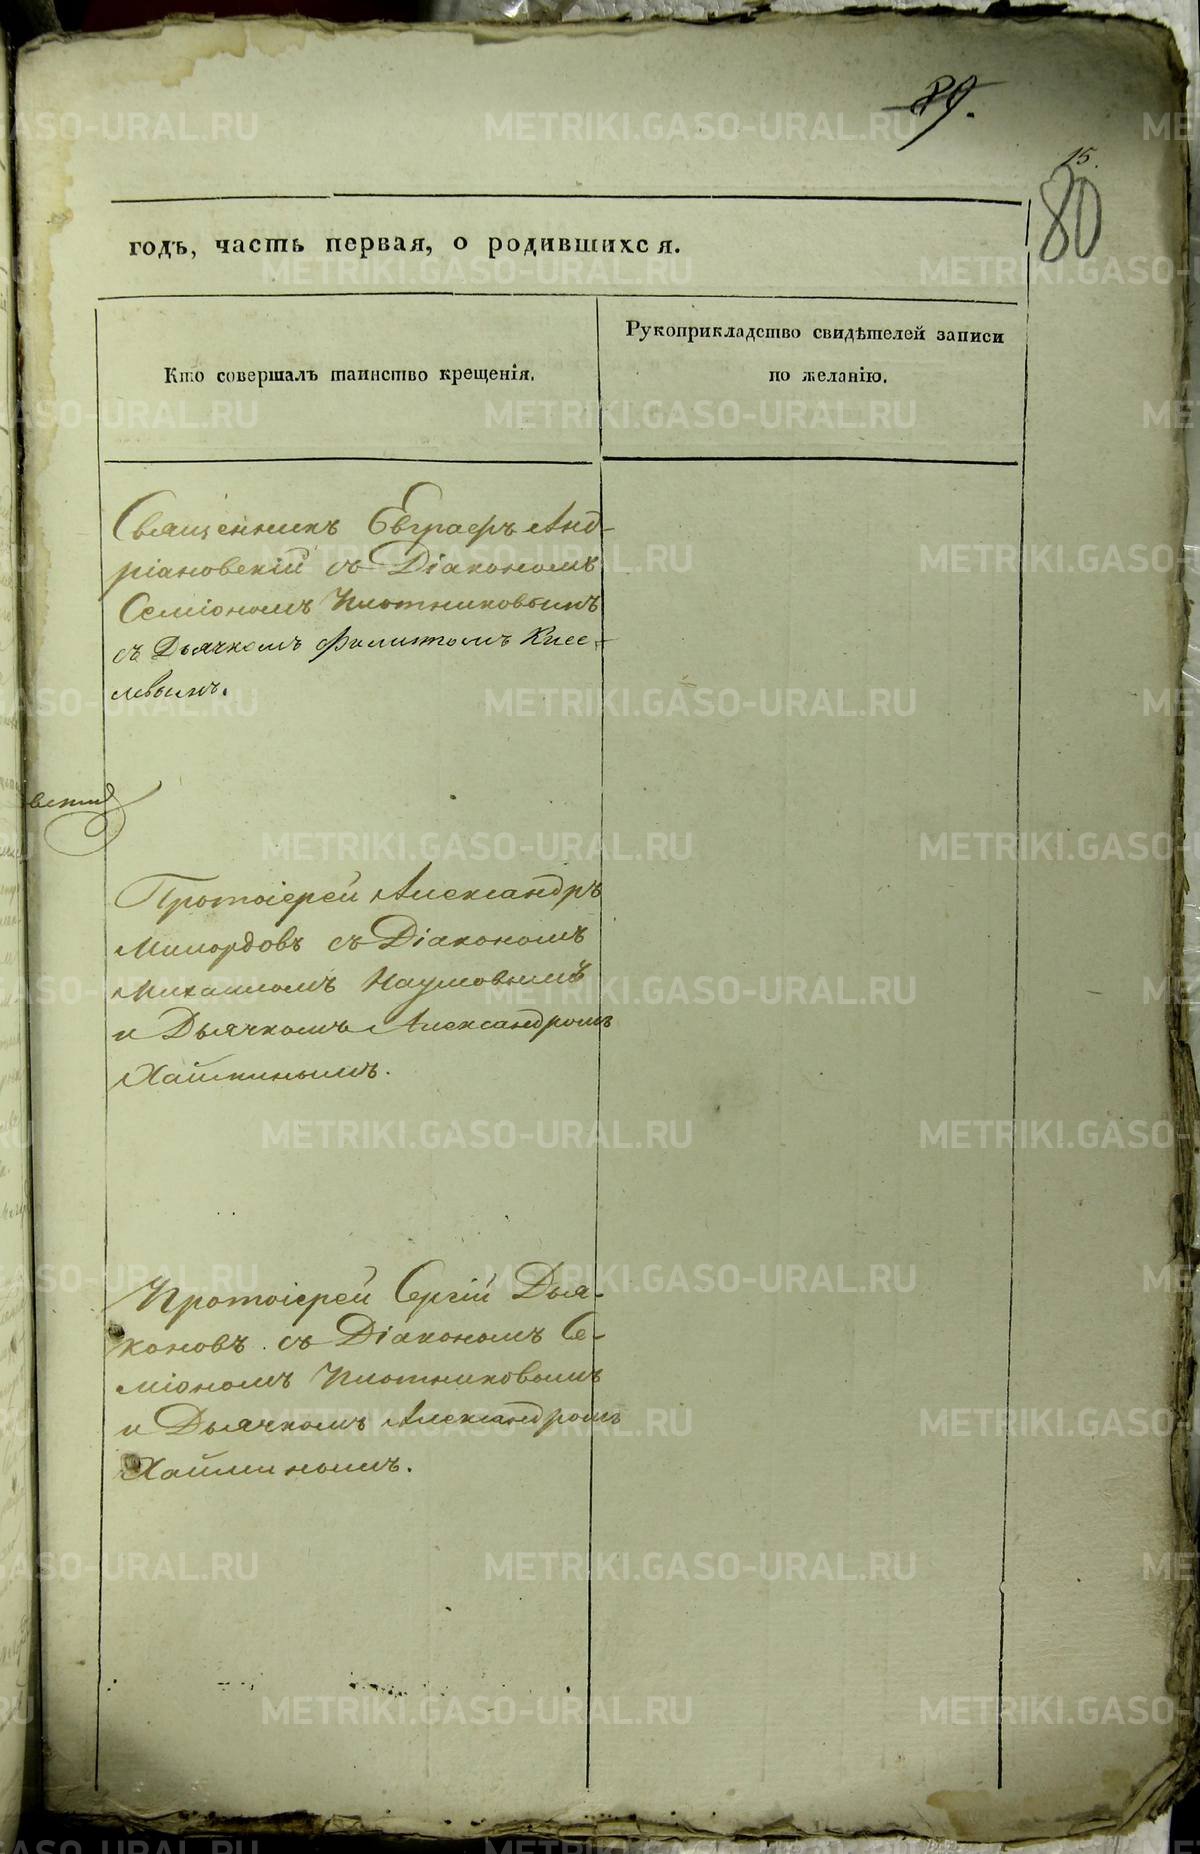 89.
15.
80
годъ, часть первая, о родившихся.
Кто совершалъ таинство крещенія.
Рукоприкладство свидѣтелей записи
по желанію.
Священникъ Евграфъ Анд-
ріановскій съ Діакономъ
Семіономъ Плотниковымъ
съ Дьячкомъ Филитомъ Кисе-
левымъ.
Протоіерей Александръ
Милордовъ съ Діакономъ
Михаиломъ Наумовымъ
и Дьячкомъ Александромъ
Хайминымъ.
Протоіерей Сергій Дья-
коновъ съ Діакономъ Се-
міономъ Плотниковымъ
и Дьячкомъ Александромъ
Хайминымъ.
METRIKI.GASO-URAL.RU